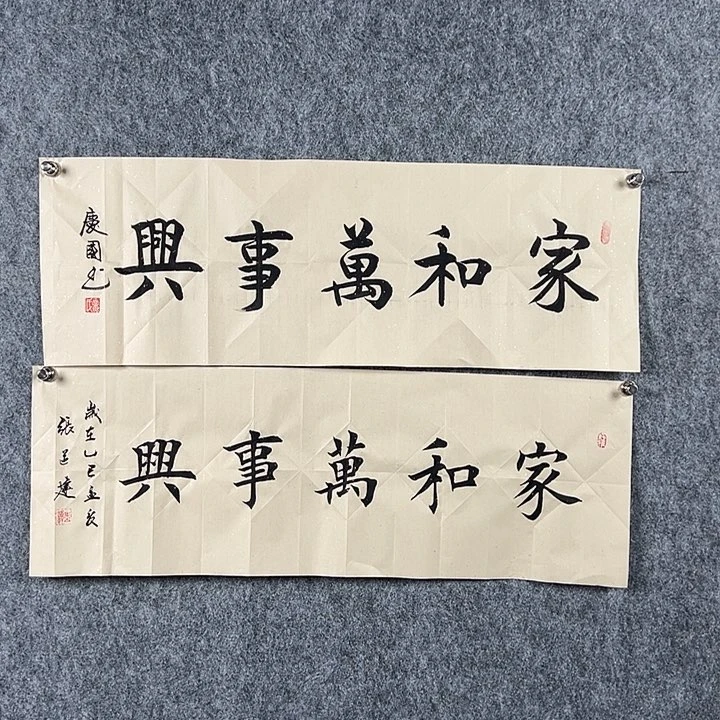 家和萬事興
慶國书
家和萬事興
歲在乙巳孟夏
張